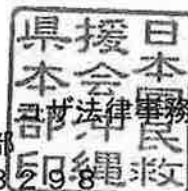 日本國民救
援会沖縄
県本部印
コザ法律事務
部
298